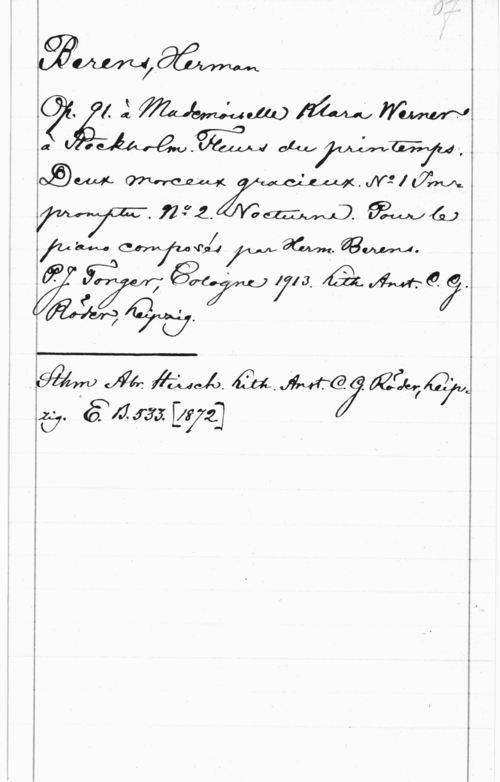 Berens, Herman
Op. 91. à Mademoiselle Klara Werner
à Stockholm. Fleurs du printemps.
Deux morceaux gracieux. No 1 Im=
promptu. No 2. Nocturne. Pour le
piano composés par Herm. Berens.
P. J. Tonger, Cologne 1913. Lith. Anst. C. G.
Röder, Leipzig.
Sthm Abr. Hirsch. Lith. Anst. C. G. Röder, Leip=
zig. E. B. 533. [1872]